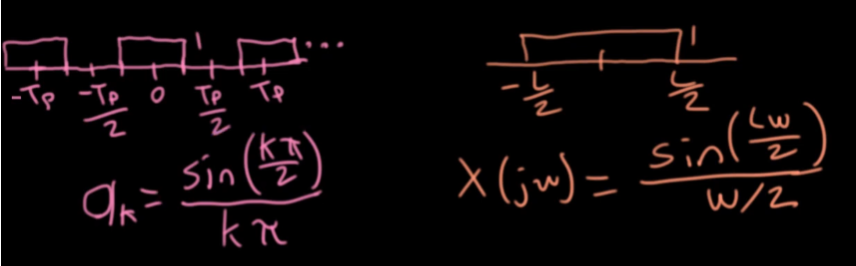 1 ...
-Tp -Tp/2 0 Tp/2 Tp
a_k = sin(kπ/2)/kπ
1
-L/2 L/2
X(jw) = sin(Lw/2)/w/2